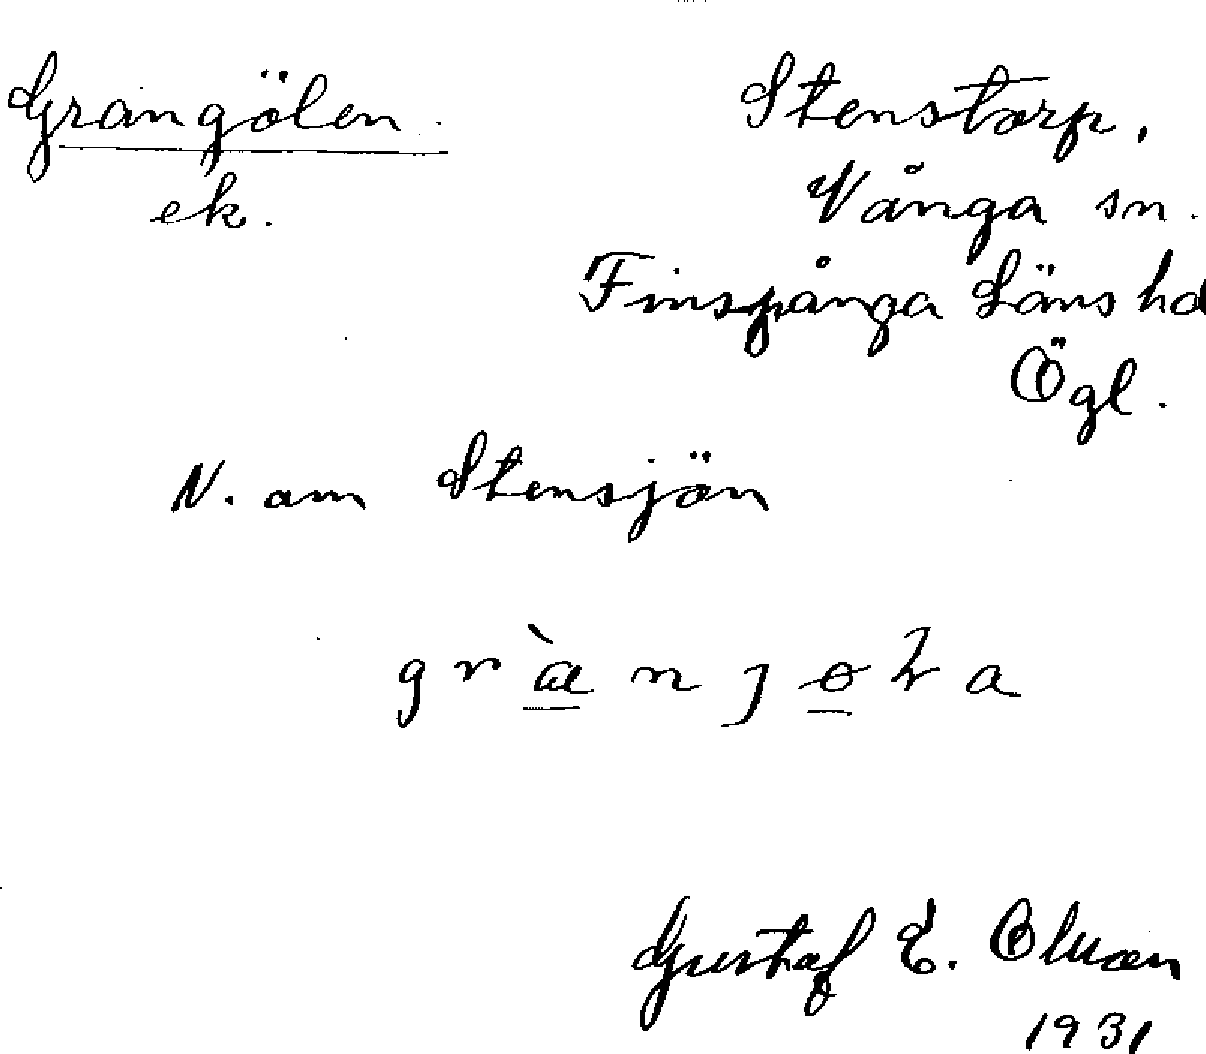 Grangölen.
ek.
Stenstorp,
Vånga sn.
Finspånga Läns hd
Ögl.
N. om Stensjön
Gustaf E.
1931